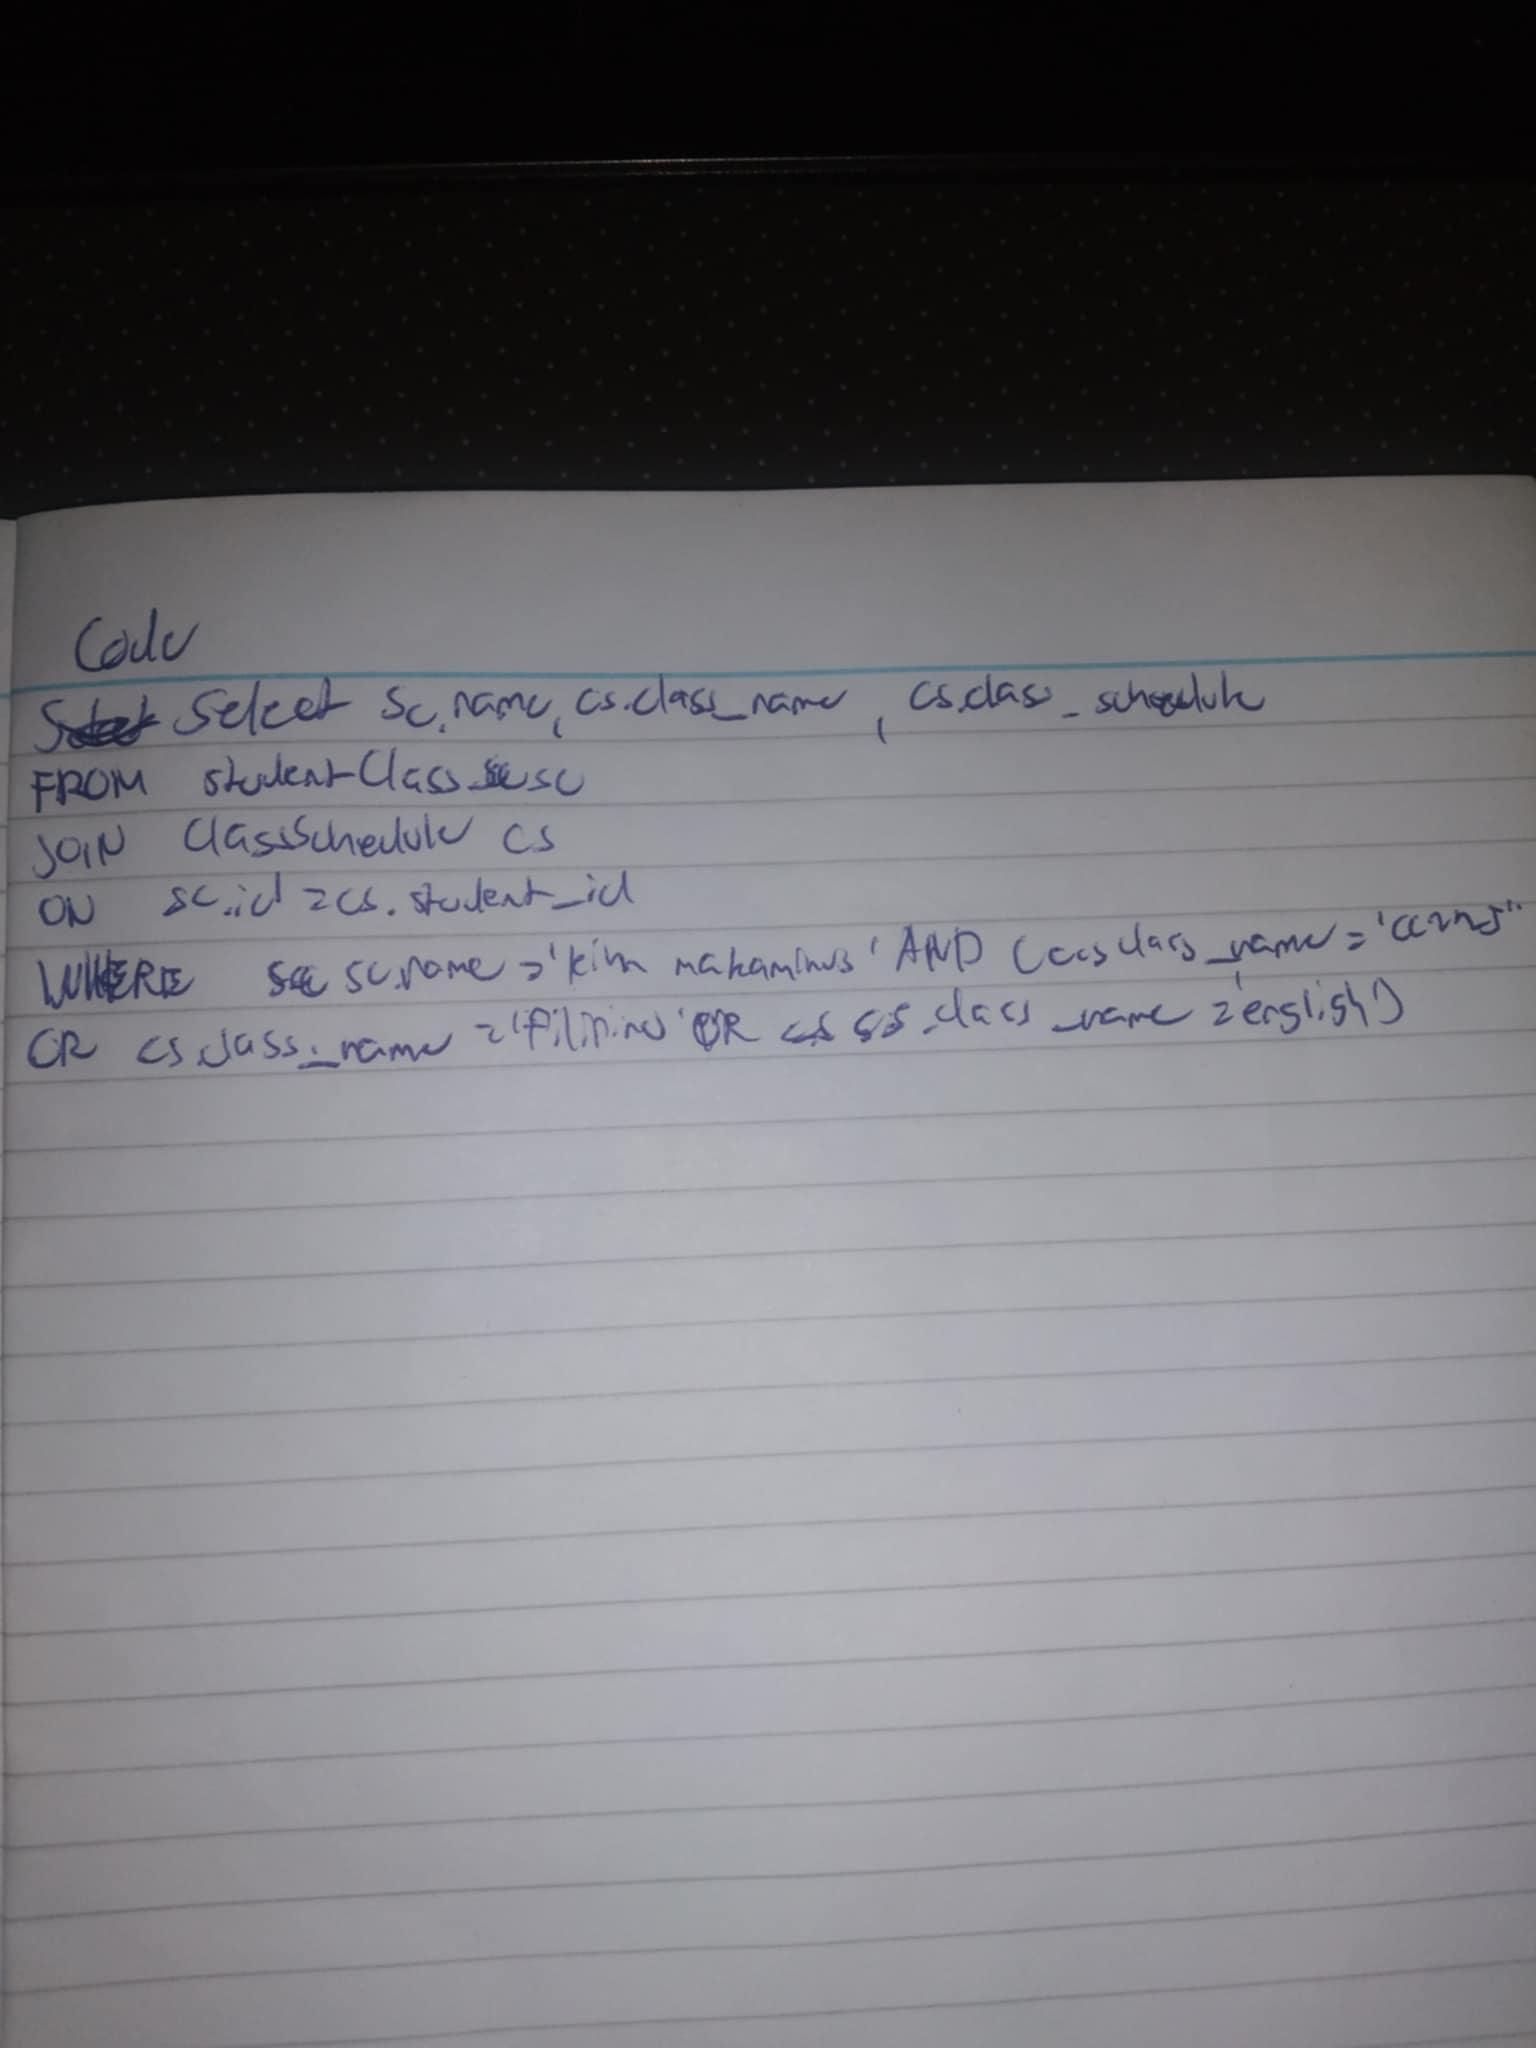 Code
Select sc.name, cs.class_name, cs.class_schedule
FROM studentClass sc
JOIN ClassSchedule cs
ON sc.id = cs.student_id
WHERE sc.name = 'kim makaminus' AND (cs.class_name = '
OR cs.class_name = 'filipino' OR cs.class_name = 'english')